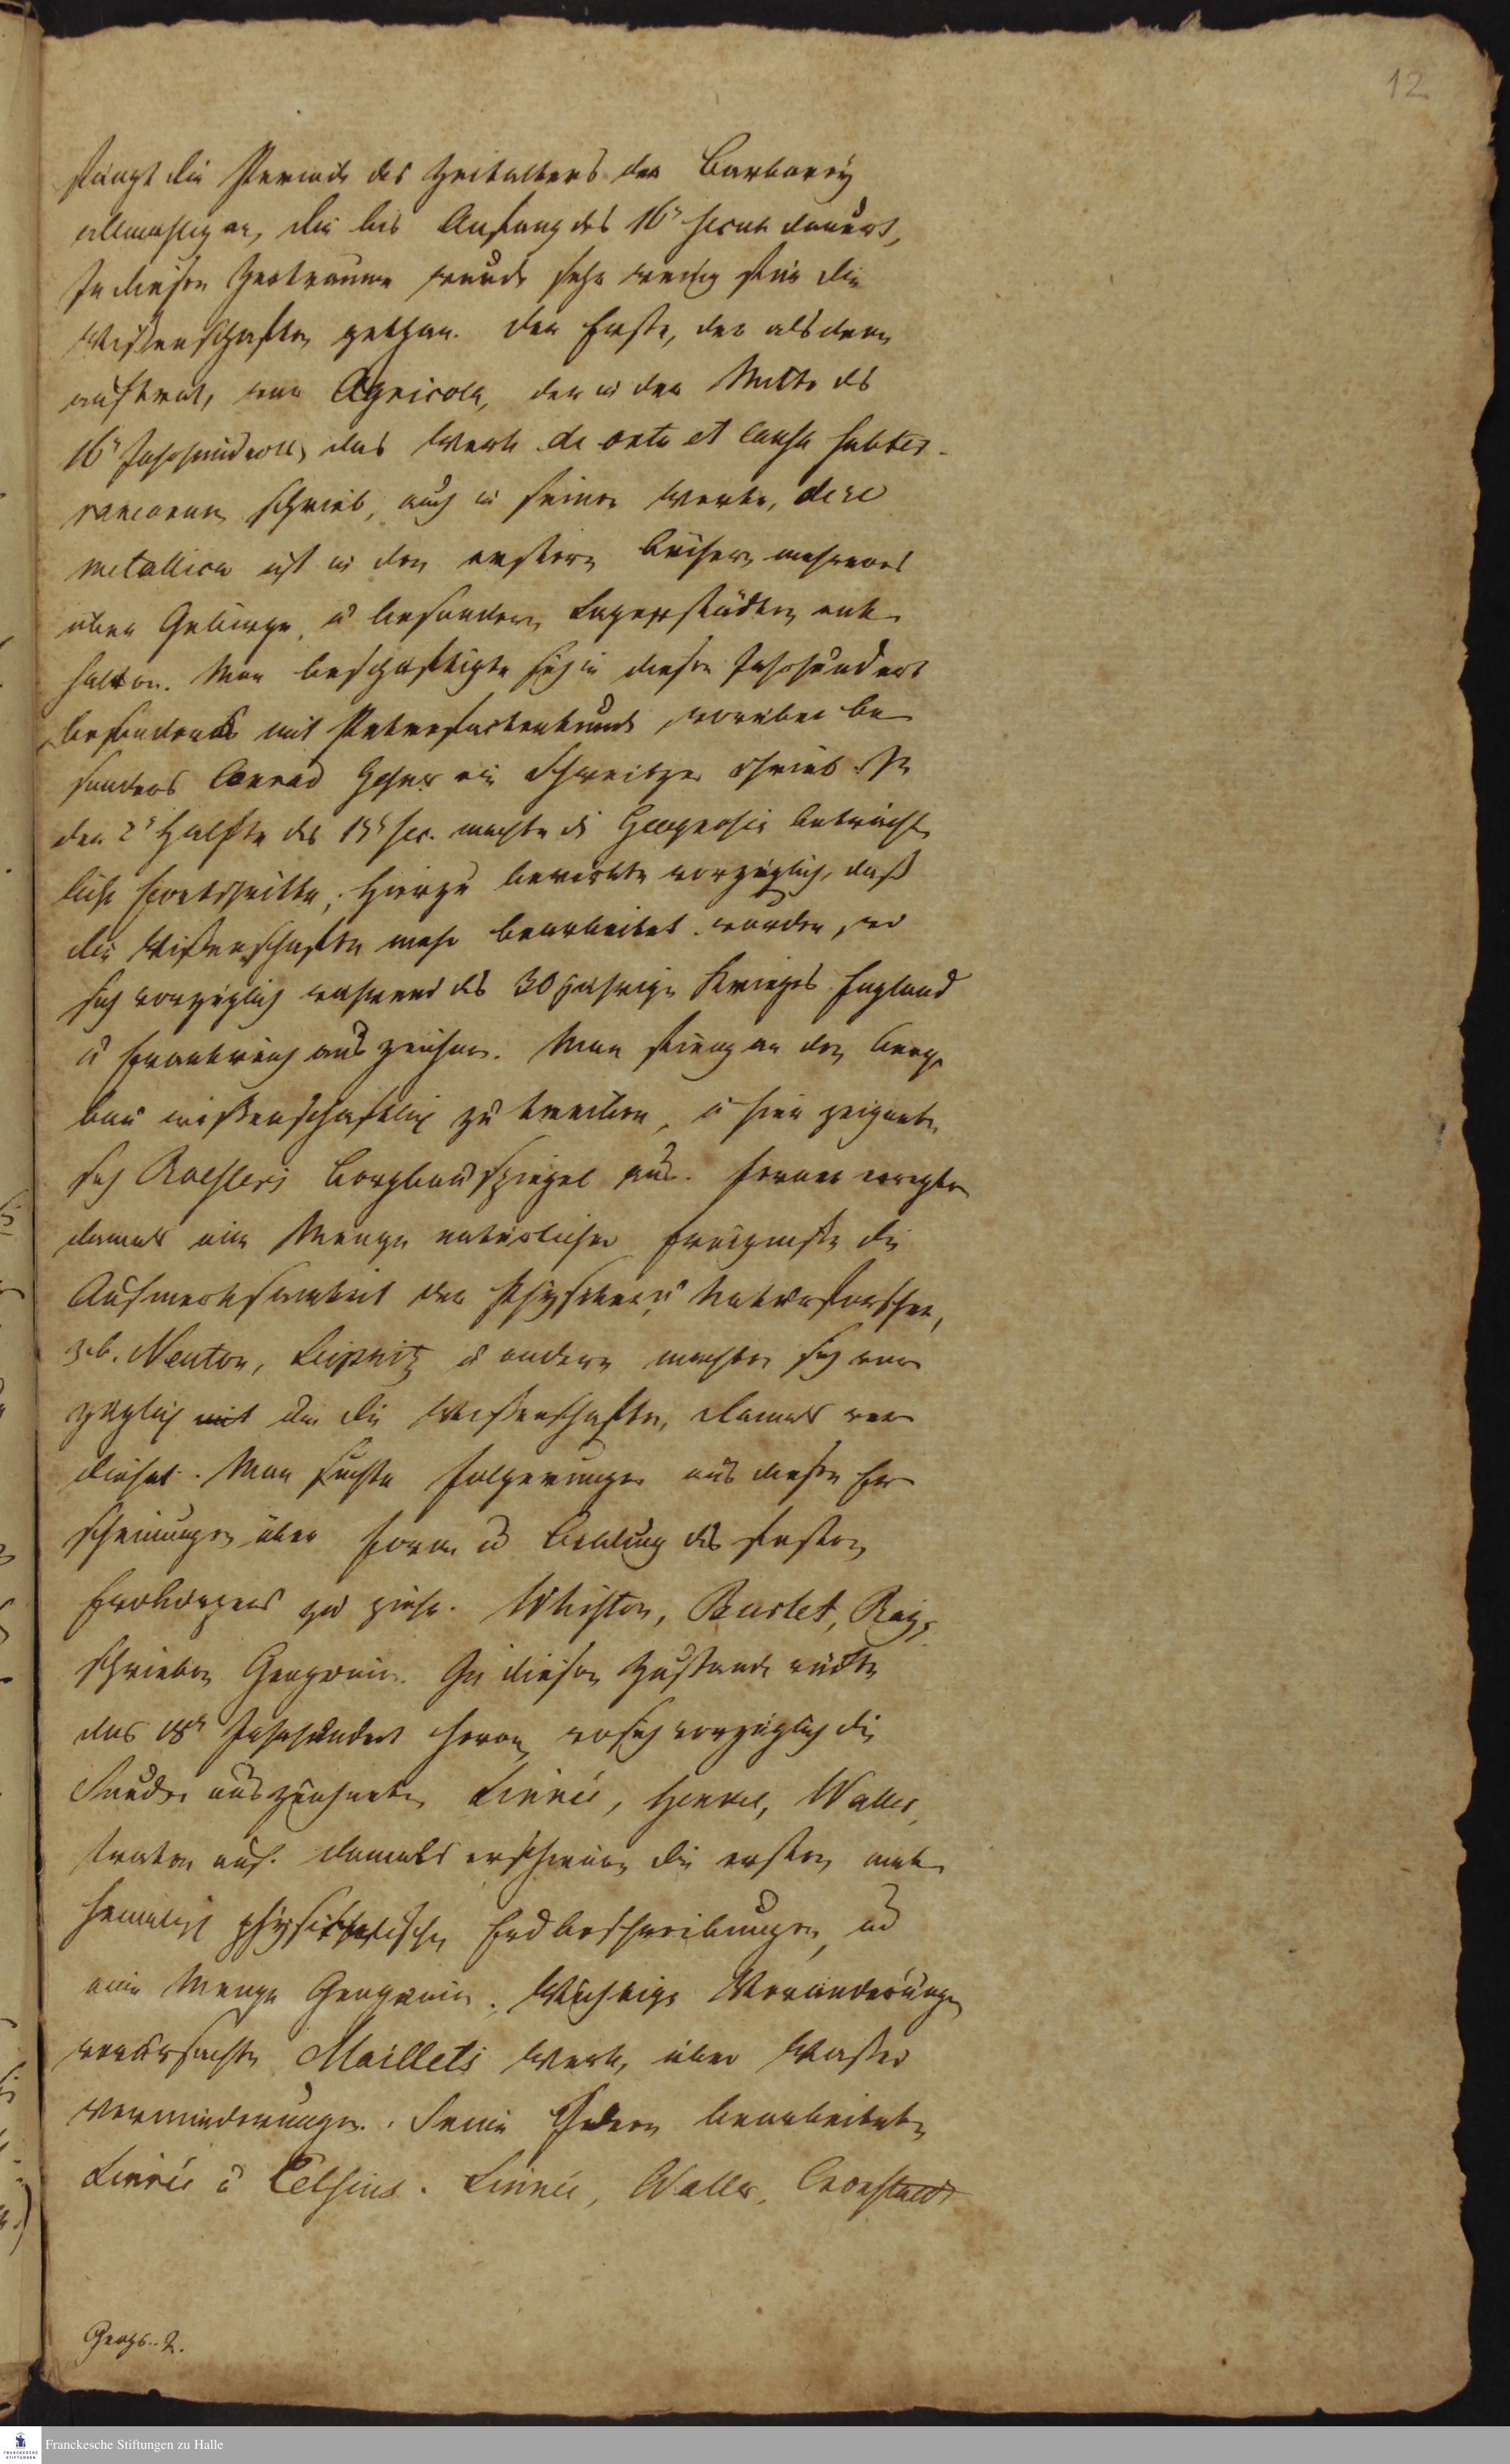 12
fängt die Periode des Zeitalters der Barbarey
allmahlig an, die bis Anfang des 16r Secul dauert,
In diesen Zeitraume wurde sehr wenig für die
Wissenschaften gethan. Der Erste, der alsdenn
auftrat, war Agricola, der in der Mitte des
16r Jahrhunderts das Werk de ortu et causa subter-
raneorum schrieb, auch in seinen Werke, de re
metallica ist in den erstern Büchern mehreres
über Gebirge, u besondern Lagerstädten ent
halten. Man beschaftigte sich in diesen Jahrhundert
besonders mit Petrefactenkunde, worüber be
sonders Conrad Gesner ein Schweitzer schrieb. In
der 2r Halfte des 17r Sec. machte die Geognosie beträcht
liche Fortschritte; hierzu bewirkte vorzüglich, daß
die Wissenschaften mehr bearbeitet wurden, wo
sich vorzüglich wahrend des 30 jahrige Krieges England
u Frankreich auszeichnen. Man fieng an den Berg
bau wissenschaftlich zu treiben, u hier zeignete
sich Roeslers Bergbauspiegel aus. Ferner erregten
damals eine Menge natürlicher Ereignisse die
Aufmerksamkeit der Physiker u Naturforscher,
z.b. Newton, Leipnitz u andere machten sich vor
züglich mit um die Wissenschaften, damals ver
dient. Man suchte Folgerungen aus diesen Er
scheinungen über Form u Bildung des festen
Erdkörpers zu ziehn. Whiston, Burnet, Ray,
schrieben Geogenien. In diesen Zustande rückte
das 18r Jahrhundert heran, wo sich vorzüglich die
Schweden auszeichneten Linnée, Henkel, Waller,
traten auf. Damals erschienen die ersten mat
hematisch physikalischen Erdbeschreibungen, und
eine Menge Geogenien. Wichtige Veränderungen
verursachte Maillets Werk, über Wasser
verminderungen. Seine Ideen bearbeiteten
Linnée u Celsius. Linnée, Waller, Cronstaedt
Geogs. 2.
Franckesche Stiftungen zu Halle